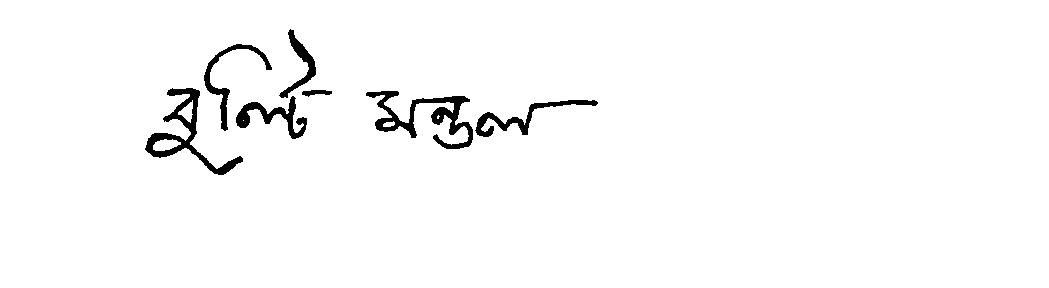 বুল্টি মন্ডল